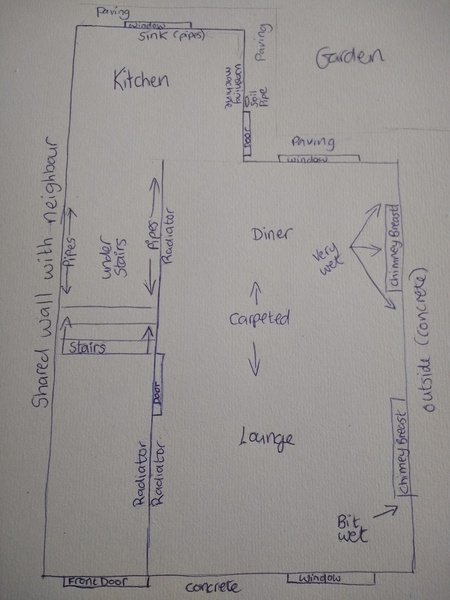 Paving
window
Sink (pipes)
Paving
Garden
Kitchen
washing
machine
Soil
Pipe
Door
Paving
window
Shared wall with neighbour
Pipes
under
Stairs
Pipes
Radiator
Diner
Very
wet
Chimney Breast
Carpeted
outside (concrete)
Stairs
Door
Lounge
Radiator
Radiator
Chimney Breast
Bit
wet
Front Door
Concrete
window